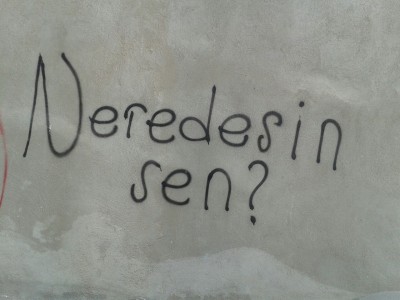 Neredesin
sen?